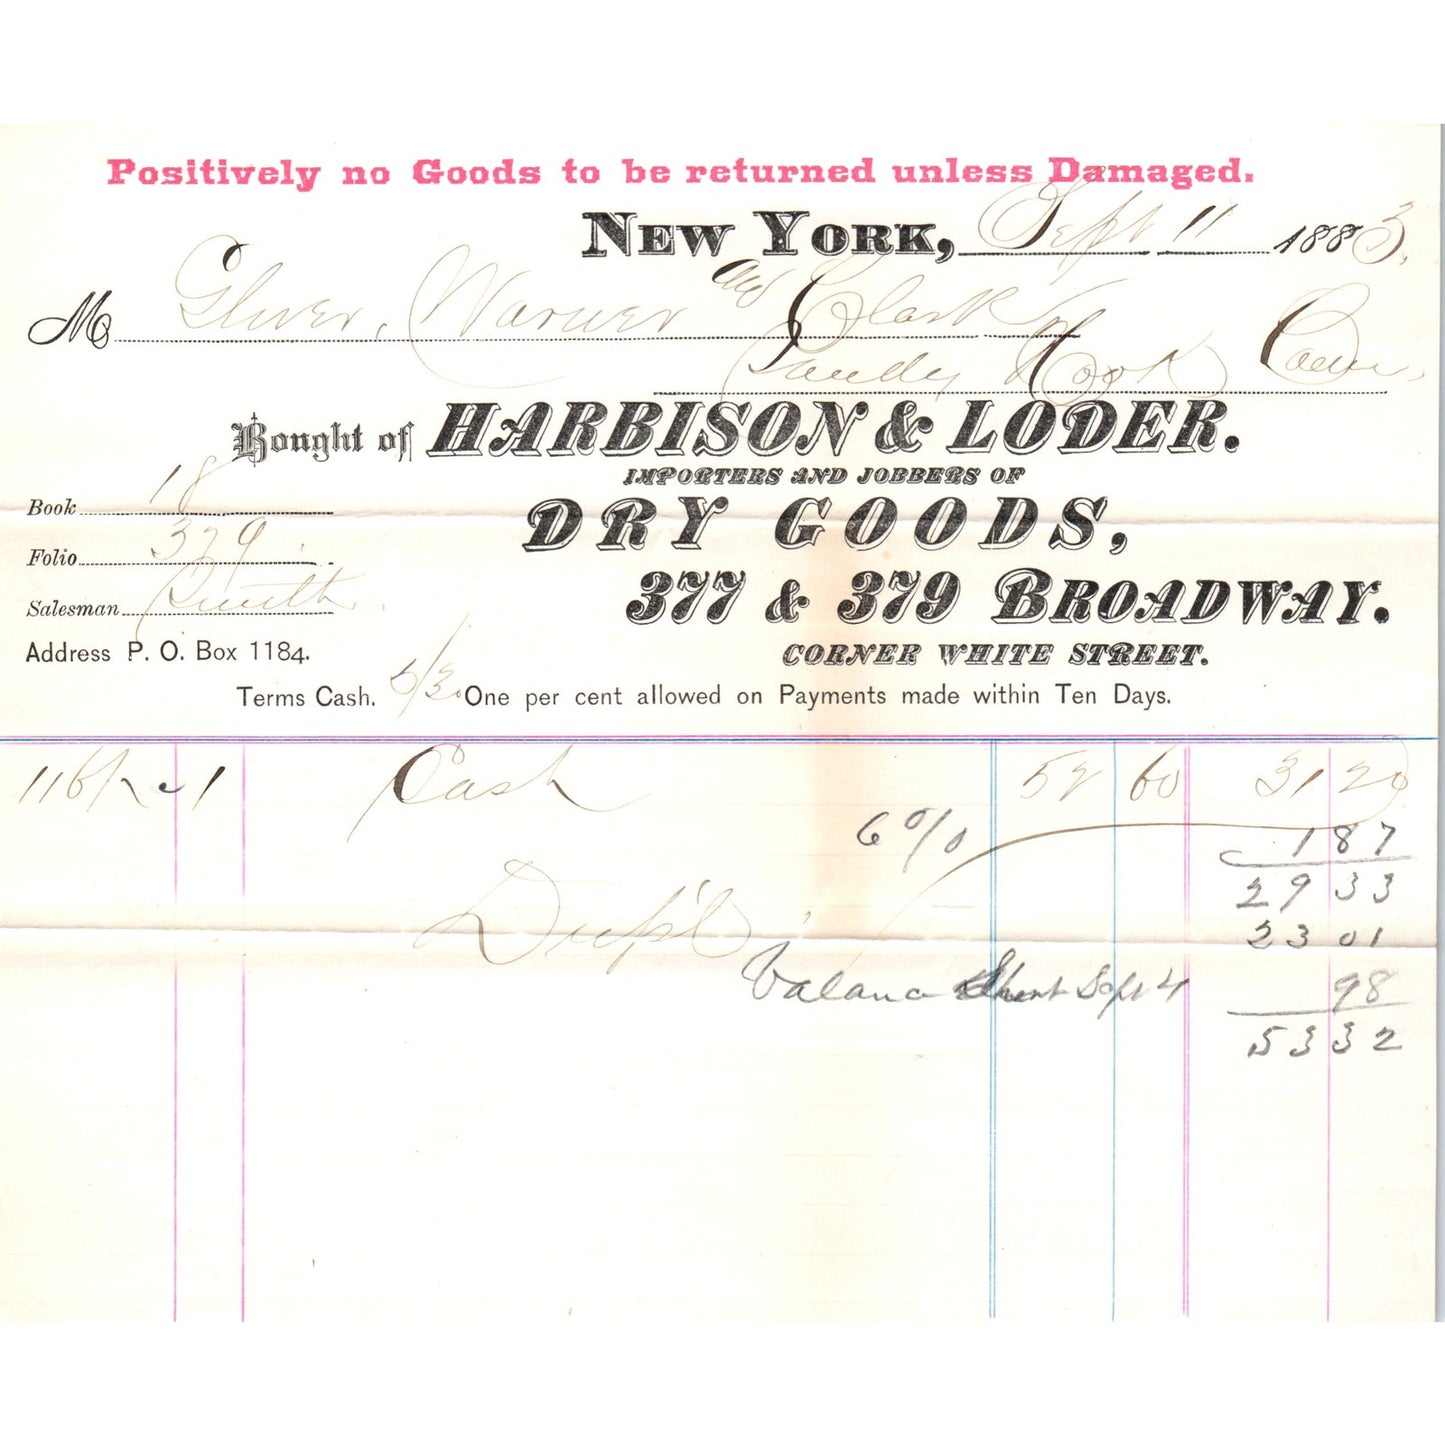 Positively no Goods to be returned unless Damaged.
New York, Sept 11 1883.
M Glover, Warner and Clark
Sandy Hook Conn,
Bought of HARBISON & LODER.
IMPORTERS AND JOBBERS OF
Book 18
DRY GOODS,
Folio 379
377 & 379 BROADWAY.
Salesman Smith
Address P. O. Box 1184.
CORNER WHITE STREET.
Terms Cash. 6/30 One per cent allowed on Payments made within Ten Days.
1 Cash 52 60 31 20
6 % 1 87
29 33
Dupl 23 01
Balance Short Sept 4 98
53 32